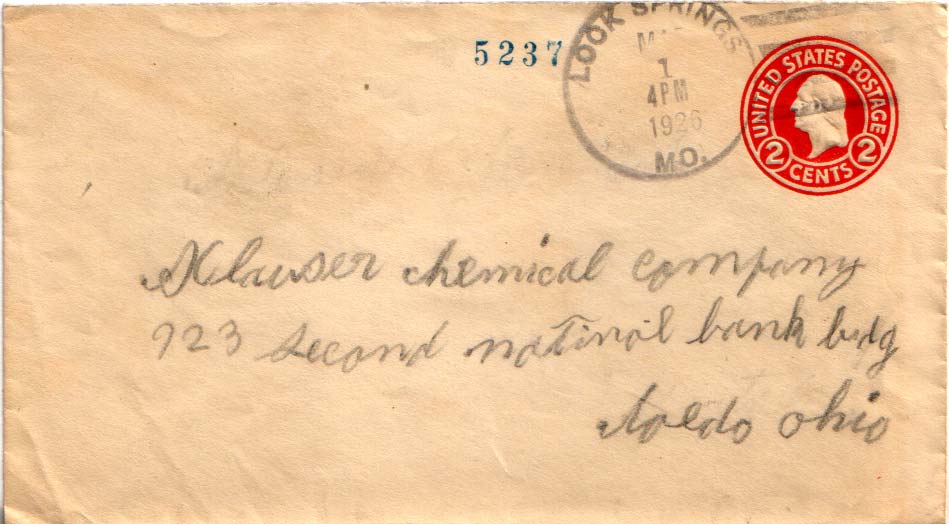 5237
LOOK SPRINGS
1
4PM
1926
MO.
UNITED STATES POSTAGE
2 CENTS 2
Klauser chemical company
723 second natinol bank bldg
toledo ohio